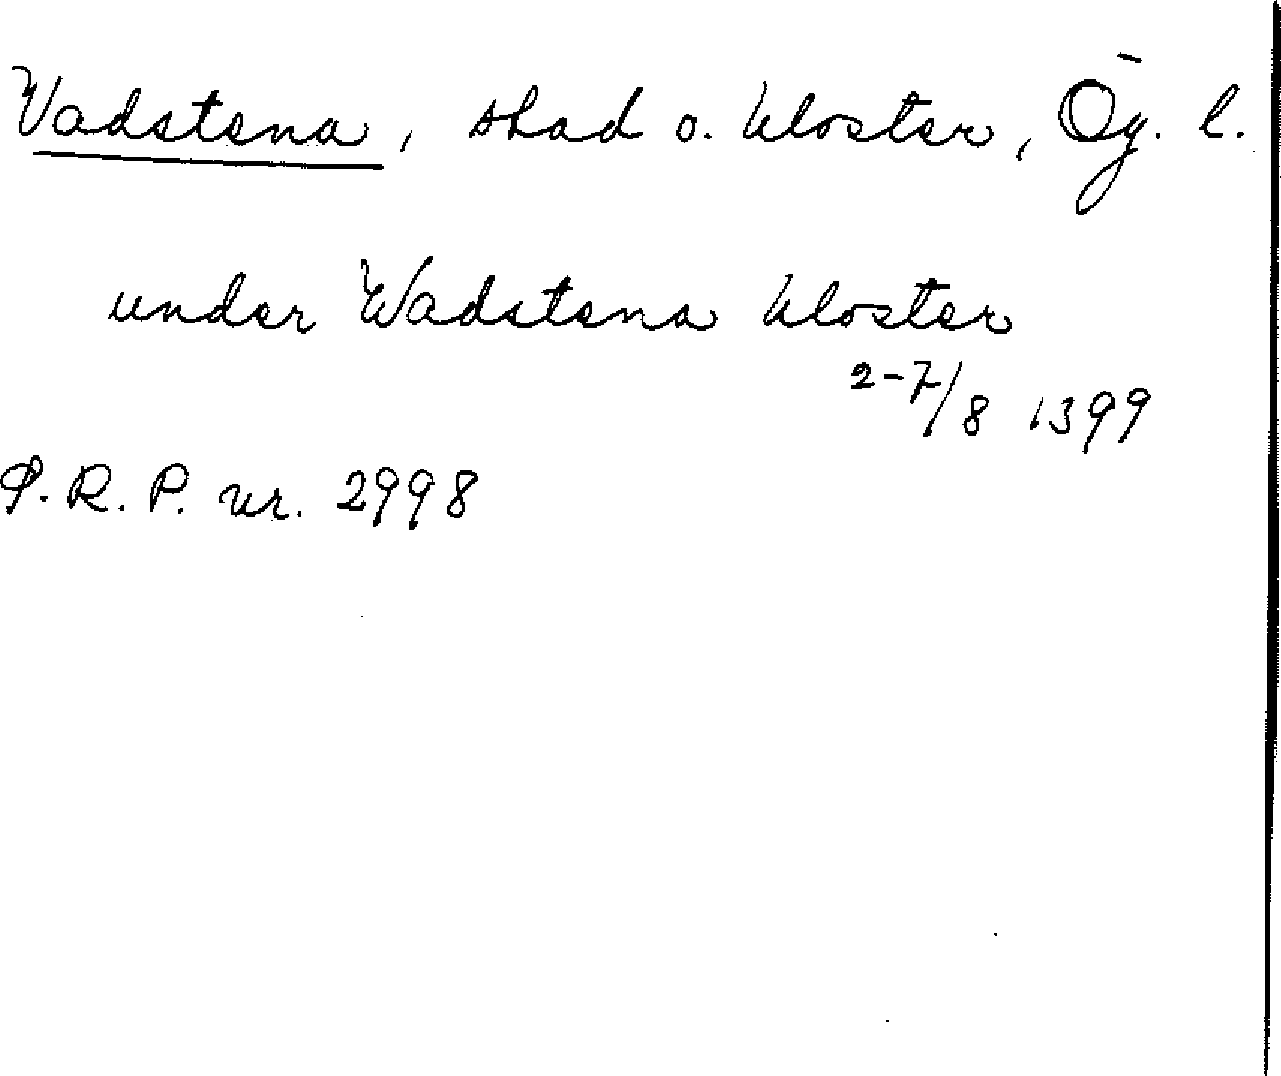 Vadstena, stad o. kloster, Ög. l.
under Wadstena kloster
2-7/8 1399
P.R.P. nr. 2998